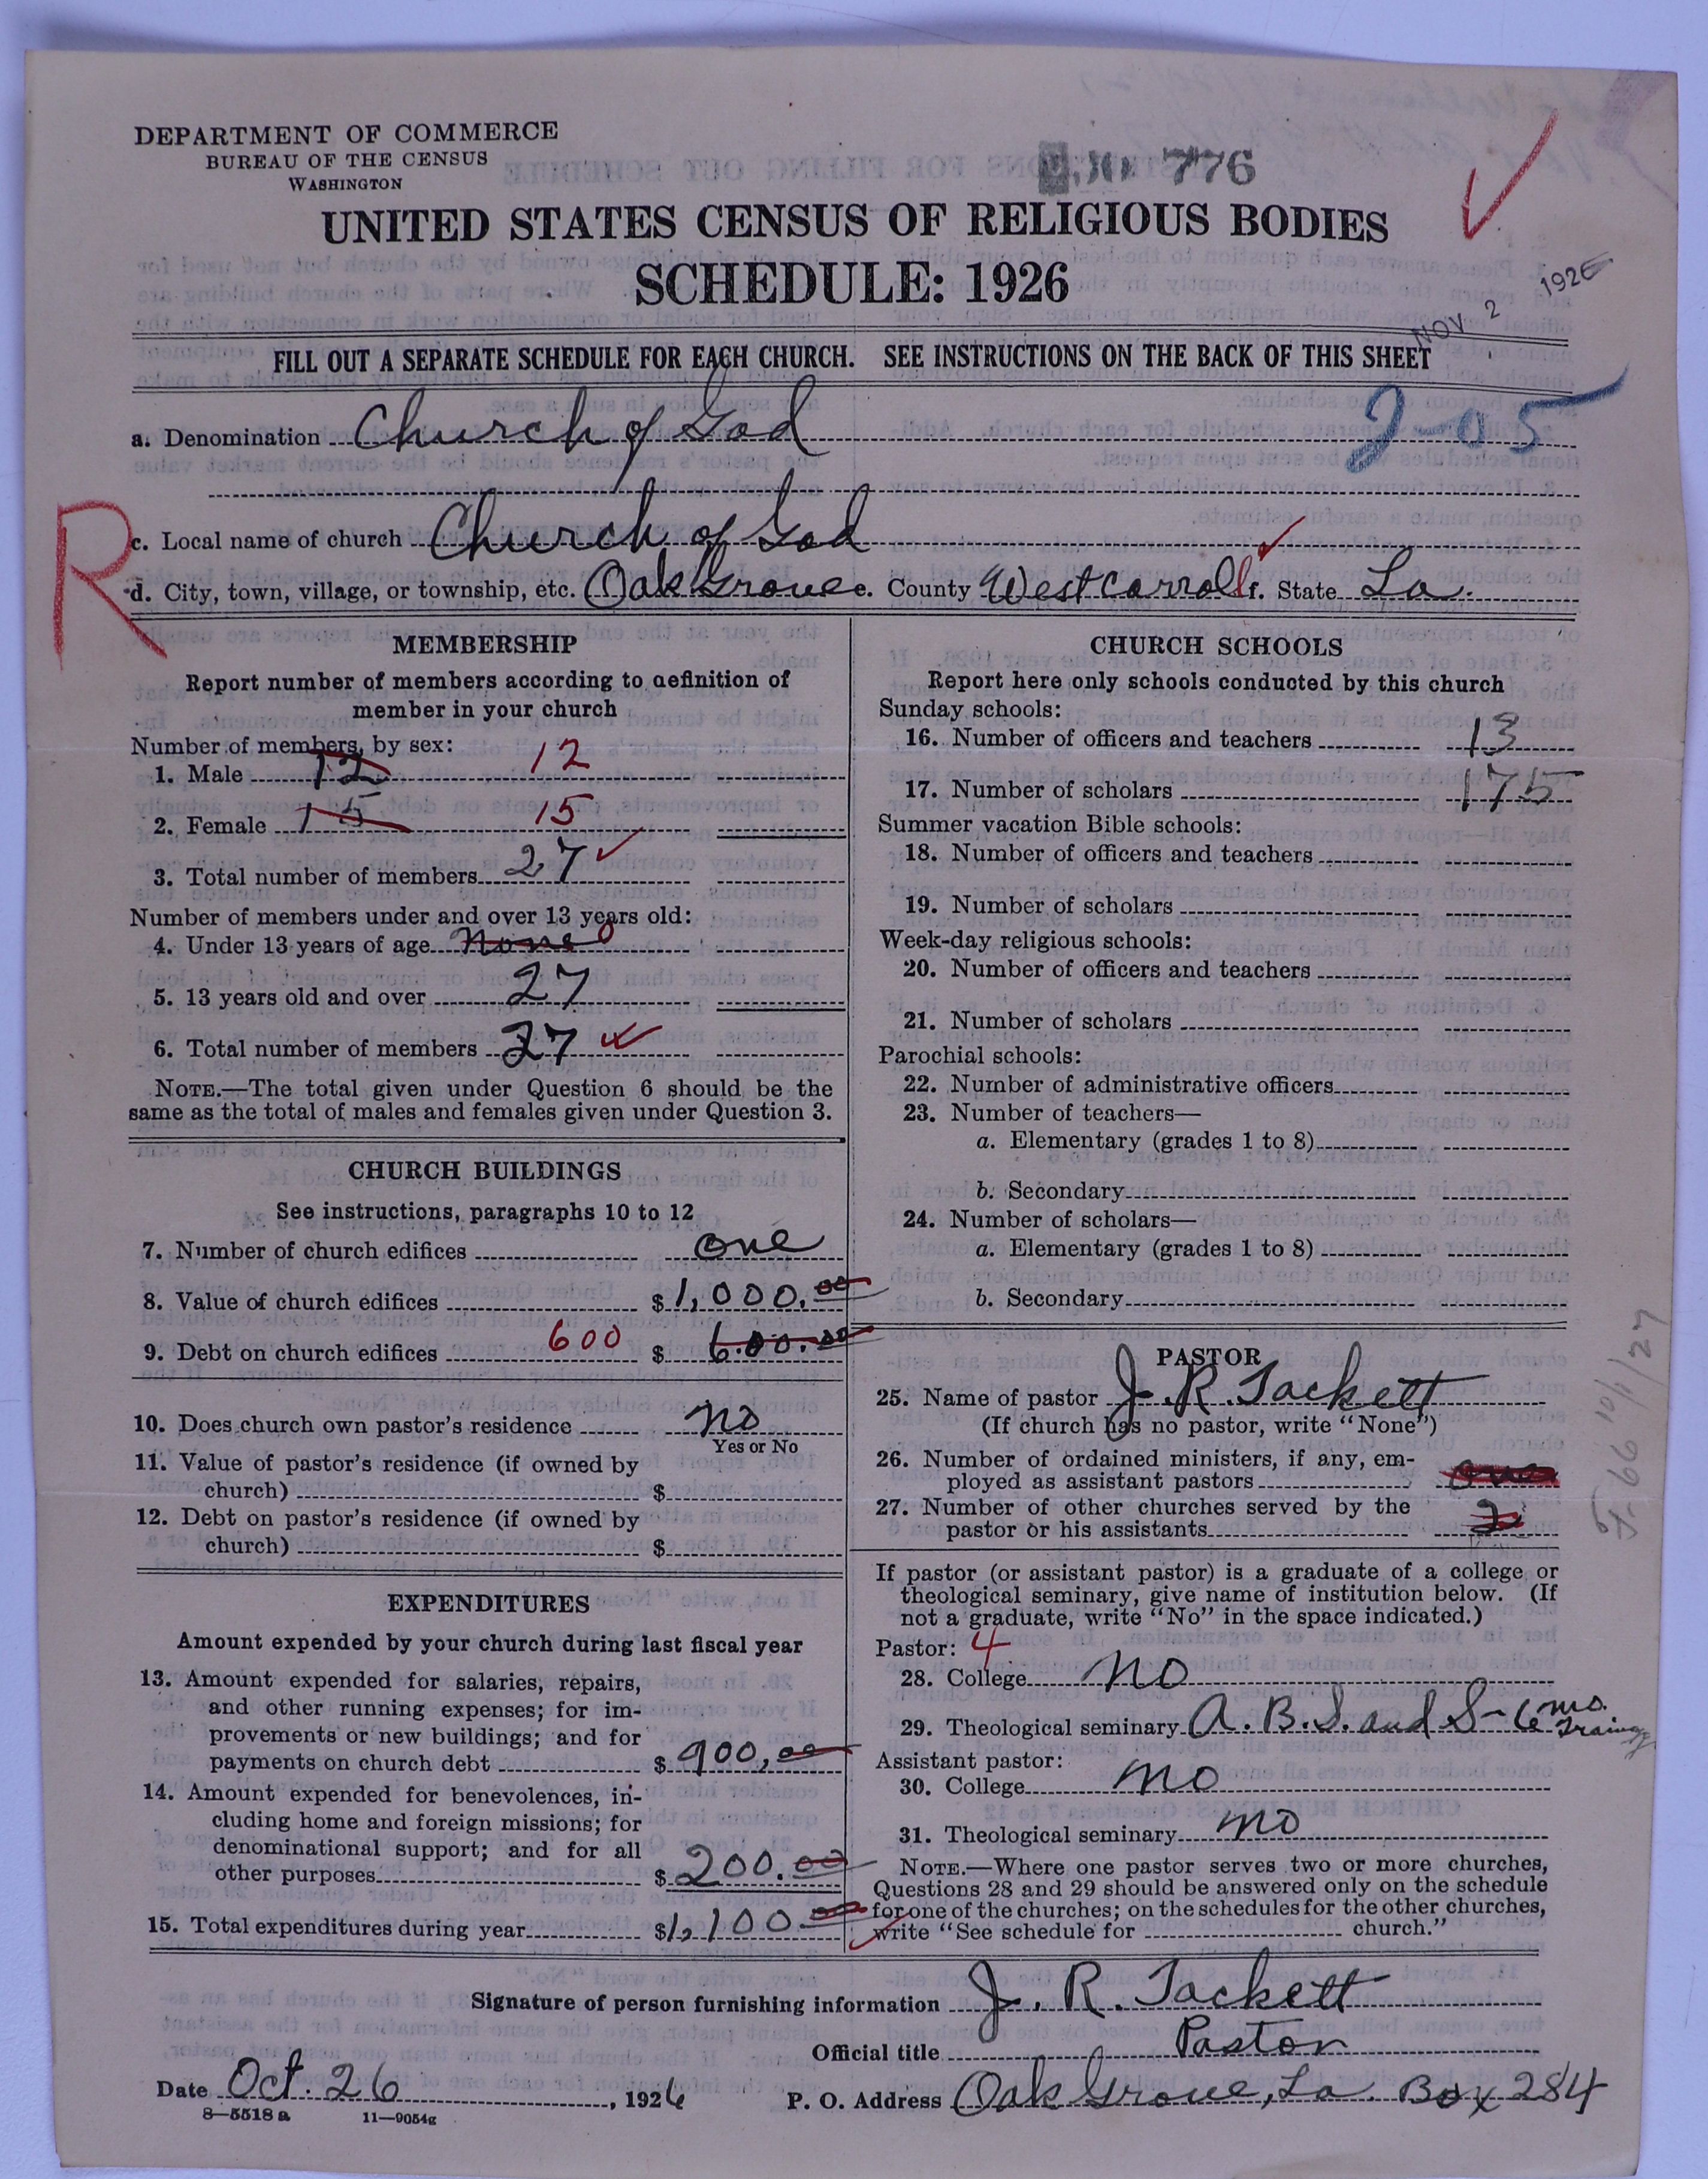 DEPARTMENT OF COMMERCE
BUREAU OF THE CENSUS
WASHINGTON
776
UNITED STATES CENSUS OF RELIGIOUS BODIES
SCHEDULE: 1926
NOV 2 1926
FILL OUT A SEPARATE SCHEDULE FOR EACH CHURCH. SEE INSTRUCTIONS ON THE BACK OF THIS SHEET
a. Denomination Church of God 2-05
R
c. Local name of church Church of God
d. City, town, village, or township, etc. Oak Grove e. County West Carroll f. State La.
MEMBERSHIP
Report number of members according to definition of
member in your church
Number of members, by sex:
1. Male 12 12
2. Female 15 15
3. Total number of members 27
Number of members under and over 13 years old:
4. Under 13 years of age None 0
5. 13 years old and over 27
6. Total number of members 27
NOTE.—The total given under Question 6 should be the
same as the total of males and females given under Question 3.
CHURCH BUILDINGS
See instructions, paragraphs 10 to 12
7. Number of church edifices one
8. Value of church edifices $1,000.00
9. Debt on church edifices 600 $ 600.00
10. Does church own pastor's residence no
Yes or No
11. Value of pastor's residence (if owned by
church) $
12. Debt on pastor's residence (if owned by
church) $
EXPENDITURES
Amount expended by your church during last fiscal year
13. Amount expended for salaries, repairs,
and other running expenses; for im-
provements or new buildings; and for
payments on church debt $ 900.00
14. Amount expended for benevolences, in-
cluding home and foreign missions; for
denominational support; and for all
other purposes $ 200.00
15. Total expenditures during year $1,100.00
CHURCH SCHOOLS
Report here only schools conducted by this church
Sunday schools:
16. Number of officers and teachers 13
17. Number of scholars 175
Summer vacation Bible schools:
18. Number of officers and teachers
19. Number of scholars
Week-day religious schools:
20. Number of officers and teachers
21. Number of scholars
Parochial schools:
22. Number of administrative officers
23. Number of teachers—
a. Elementary (grades 1 to 8)
b. Secondary
24. Number of scholars—
a. Elementary (grades 1 to 8)
b. Secondary
PASTOR
25. Name of pastor J. R. Tackett
(If church has no pastor, write "None")
26. Number of ordained ministers, if any, em-
ployed as assistant pastors one
27. Number of other churches served by the
pastor or his assistants 2
If pastor (or assistant pastor) is a graduate of a college or
theological seminary, give name of institution below. (If
not a graduate, write "No" in the space indicated.)
Pastor: 4
28. College no
29. Theological seminary A. B. S. and S- 6 mo. Training
Assistant pastor:
30. College no
31. Theological seminary no
NOTE.—Where one pastor serves two or more churches,
Questions 28 and 29 should be answered only on the schedule
for one of the churches; on the schedules for the other churches,
write "See schedule for church."
Signature of person furnishing information J. R. Tackett
Official title Pastor
Date Oct. 26, 1926 P. O. Address Oak Grove, La. Box 284
8—5518a 11—9054g